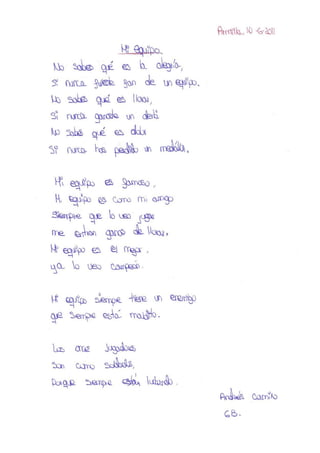 Armilla, 10
Mi equipo.
No sabes qué es la alegría,
Si nunca fuiste fan de un equipo.
No sabes qué es llorar,
Si nunca ganaste un derbi
No sabes qué es dolor
Si nunca has perdido un mundial.
Mi equipo es famoso,
Mi equipo es como mi amigo
Siempre que lo veo jugar
me entran ganas de llorar,
Mi equipo es el mejor,
ya lo veo campeón.
Mi equipo siempre tiene un enemigo
que siempre está maldito.
Los once jugadores
son como soldados,
Porque siempre están luchando.
Andrés Carrillo
6B.